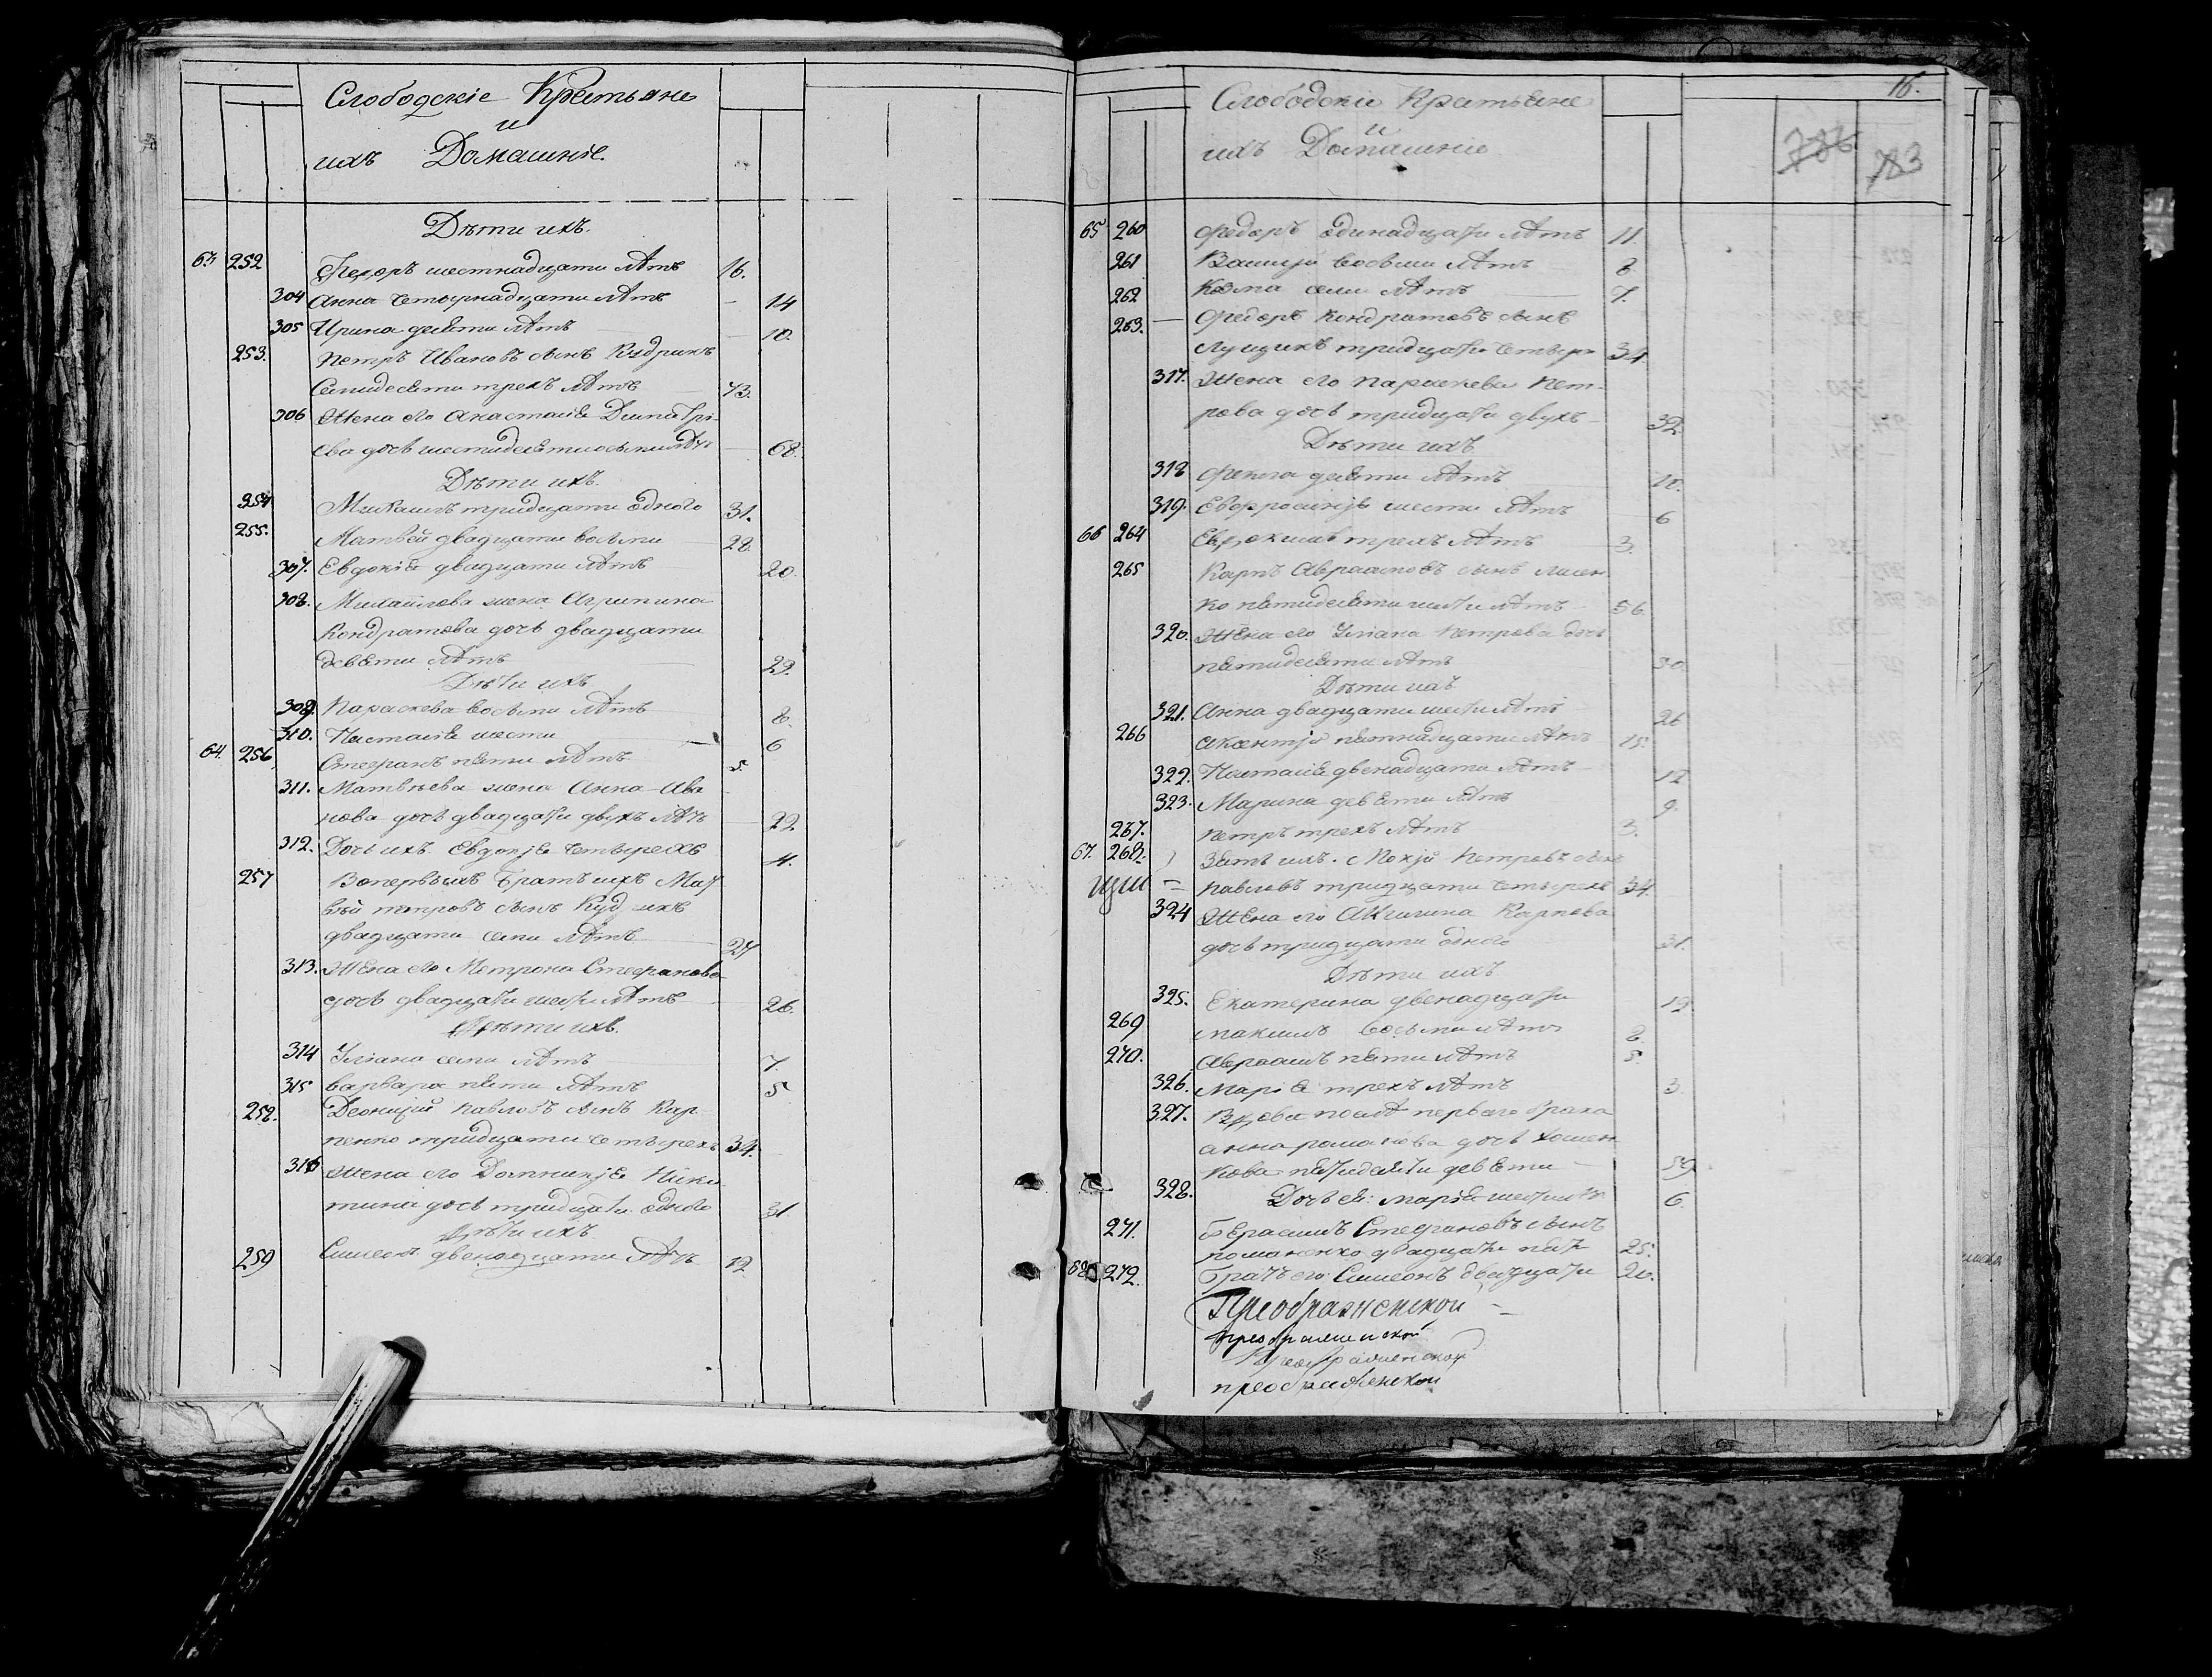 Слободскіе Крестьяне
и
ихъ Домашніе.
Дѣти ихъ.
63 252 Феѳоръ шестнадцати лѣтъ 16.
304 Анна четырнадцати лѣтъ — 14
305 Ирина десяти лѣтъ — 10.
253. Петръ Ивановъ сынъ Кудринъ
Семидесяти трехъ лѣтъ 73.
306 Жена его Анастасія Димитрі-
ева дочь шестидесятиосьми лѣтъ — 68.
Дѣти ихъ.
254 Михаилъ тридцати одного 31.
255. Матвей двадцати восьми 28.
307. Евдокія двадцати лѣтъ 20.
308. Михайлова жена Агрипина
Кондратова дочь двадцати
девяти лѣтъ 29.
Дѣти ихъ
309. Параскева восьми лѣтъ 8.
310. Настасія шести — 6
64. 256. Стефанъ пяти лѣтъ 5.
311. Матвѣева жена Анна Ива
нова дочь двадцати двухъ лѣтъ — 22
312. Дочь ихъ Евдокія четырехъ 4.
257 Вопервыхъ братъ ихъ Мат
вѣй петровъ сынъ
двадцати семи лѣтъ 27
313. Жена его Метрона Стефанова
дочь двадцати шести лѣтъ 26.
Дѣти ихъ.
314 Уліана семи лѣтъ 7.
315 варвара пяти лѣтъ 5
258. Деонисій павловъ сынъ Кар
пенко тридцати четырехъ 34.
316 Жена его Домникія Ники
тина дочь тридцати одного 31.
Дѣти ихъ.
259 Симеонъ двенадцати лѣтъ 12.
16.
Слободскіе Крестьяне
и
ихъ Домашніе
736 783
65 260 Федоръ одинадцати лѣтъ 11.
261 Василій восьми лѣтъ 8.
262 Козма семи лѣтъ 7.
263. — Федоръ Кондратовъ сынъ
Лущикъ тридцати четыре 34.
317. Жена его параскева пет-
рова дочь тридцати двухъ 32.
Дѣти ихъ
318 Фекла десяти лѣтъ 10.
319. Евфросинія шести лѣтъ 6
66 264 Евдокимъ трехъ лѣтъ 3.
265 Карпъ Авраамовъ сынъ лисен
ко пятидесяти шести лѣтъ 56.
320. Жена его Уліана петрова дочь
пятидесяти лѣтъ 50
Дѣти ихъ
321. Анна двадцати шести лѣтъ 26
266 Аксентій пятнадцати лѣтъ 15.
322. Настасія двенадцати лѣтъ 12
323. Марина девяти лѣтъ 9.
267. петръ трехъ лѣтъ 3.
67. 268. Зять ихъ Мокій петровъ сынъ
павловъ тридцати четырехъ 34.
324 Жена его Акилина Карпова
дочь тридцати одного 31.
Дѣти ихъ
325. Екатерина двенадцати 12
269 максимъ восьми лѣтъ 8.
270. Авраамъ пяти лѣтъ 5.
326. Марія трехъ лѣтъ 3.
327. Вдова послѣ перваго брака
анна романова дочь хомен
кова пятидесяти девяти 59.
328. Дочь ея: марія шести лѣ 6.
271. Герасимъ Стефановъ сынъ
романенко двадцати пяти 25.
68 272. Братъ его Симеонъ двадцати 20.
Преображенской
преображенской
Преображенской
преображенской